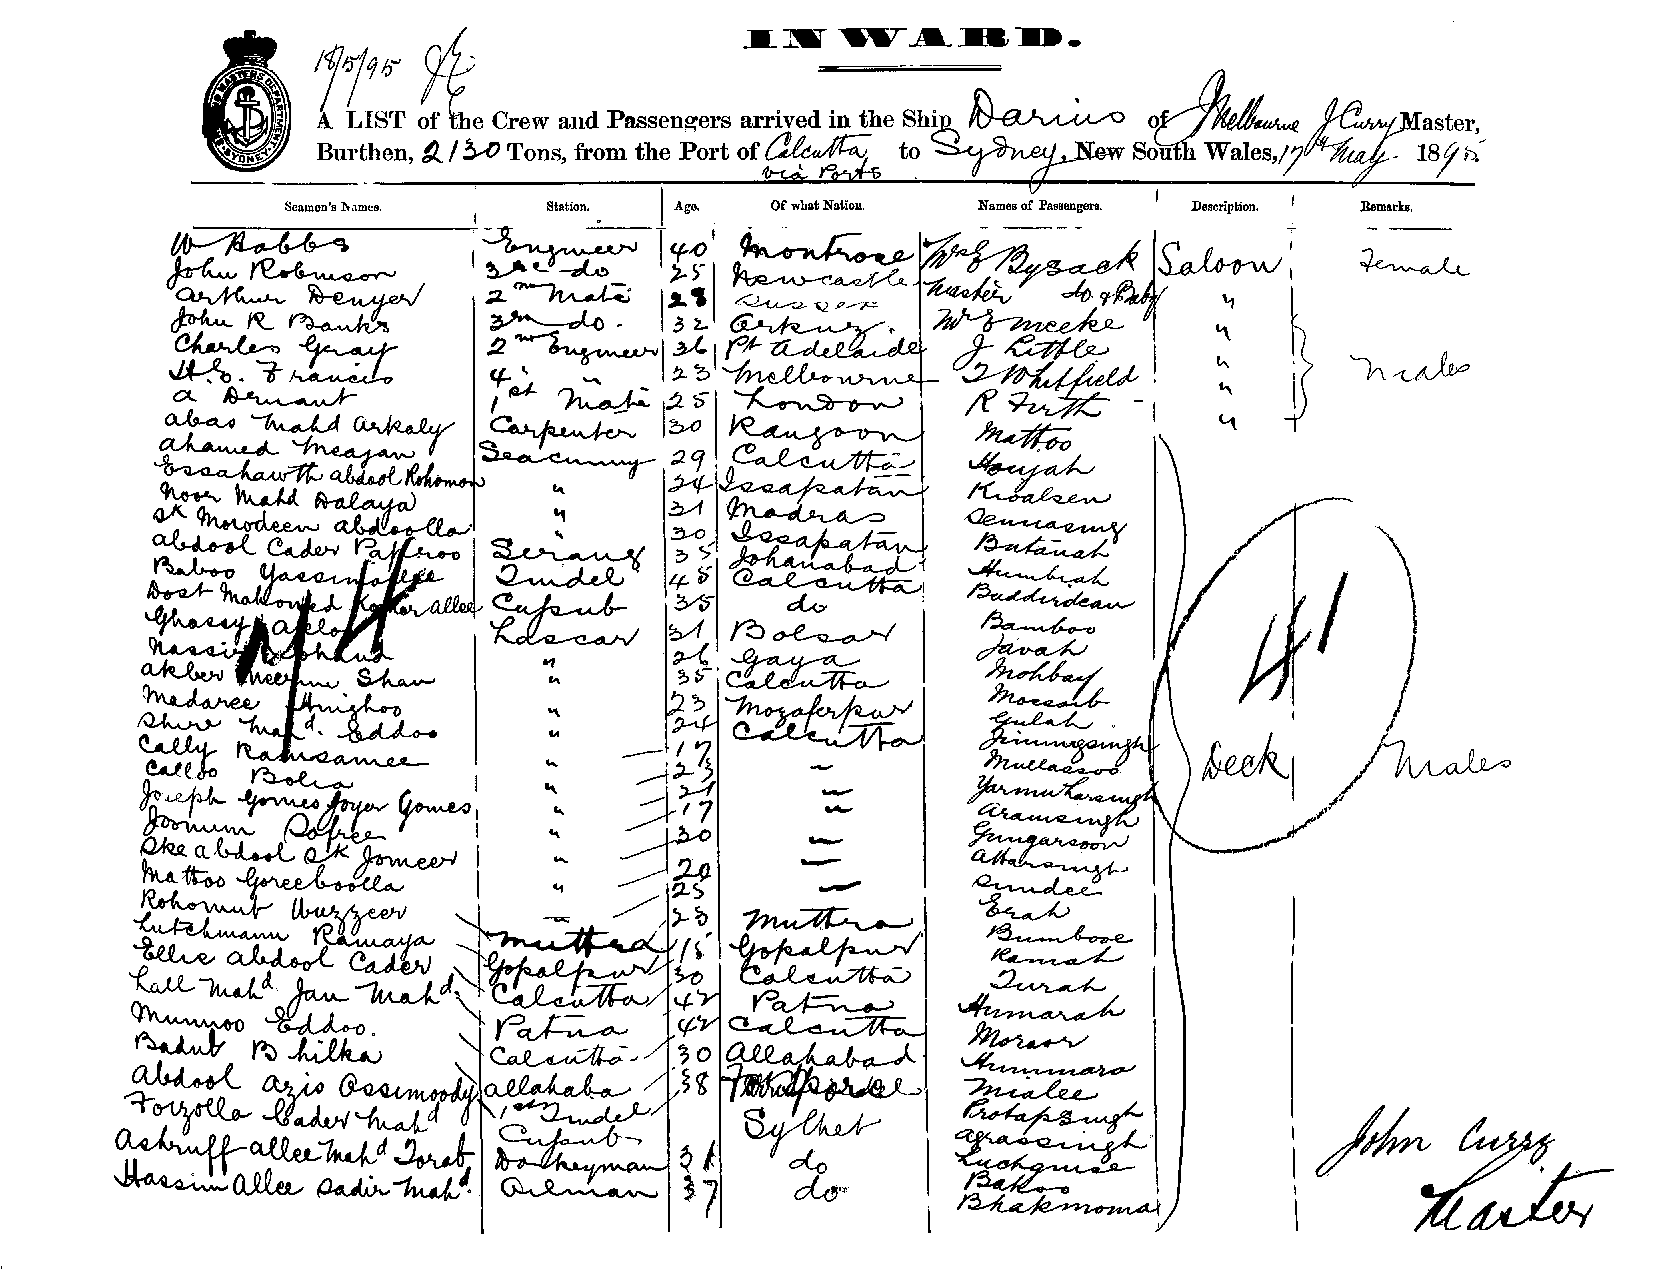 INWARD.
18/5/95
A LIST of the Crew and Passengers arrived in the Ship Darius of Melbourne J Curry Master,
Burthen, 2130 Tons, from the Port of Calcutta to Sydney, New South Wales, 17th May 1895
via Ports
Seamen's Names. Station. Age. Of what Nation. Names of Passengers. Description. Remarks.
W Hobbs Engineer 40 Montrose Mrs Bysack Saloon Female
John Robinson 3rd do 25 Newcastle Master do & Baby "
Arthur Denyer 2nd Mate 28 Sussex
John R Banks 3rd do. 32 Mr E Meeke "
Charles Gray 2nd Engineer 36 Pt Adelaide J Little "
H.E. Francis 4 " 23 Melbourne T Whitfield " Males
A Demant 1st Mate 25 London R Firth "
Abas Mahd Arkaly Carpenter 30 Rangoon Mattoo
Ahamed Meajan Seacunny 29 Calcutta Houjah
Essahawth Abdool Rohomon " 24 Issapatan Kioalsen
Noor Mahd Dalaya " 31 Madras Sennasing
Sk Morodeen Abdoolla " 30 Issapatan Batanah
Abdool Cader Serang 35 Johanabad Humbiah
Baboo Tindel 45 Calcutta Budderdeau
Dost Mahomed Allee Cussub 35 do Bamboo
Ghassy Lascar 31 Bolsar Javah
Nassir " 26 Gaya Mohbay
Akber Shau " 35 Calcutta Moesaib
Madaree " 23 Mozaferpur Gulah
Shire Mahd. Eddoo " 24 Calcutta Jimmysingh
Cally Ramsamee " 17 Mullassoo
Calloo Bolia " 23 " Yarmutharsingh Deck Males
Joseph Gomes Joyer Gomes " 21 " Aramsingh
Joomun Sofree " 17 " Gungarsoon
Ske Abdool Sk Jomeer " 30 " Attarsingh
Mattoo Goreeboolla " 20 " Sundee
Rohomut Wuzzeer " 25 " Erah
Lutchmann Ramaya Muttra 23 Muttra Bumbooe
Ellie Abdool Cader Gopalpur 18 Gopalpur Ramah
Lall Mahd Jan Mahd. Calcutta 30 Calcutta Turah
Munnoo Eddoo. Patna 42 Patna Humarah
Badut Bhilka Calcutta 42 Calcutta Moraor
Abdool Azis Ossimoody Allahaba 30 Allahabad Hummara
Foizolla Cader Mahd 1st Tindel 38 Mialee
Cussub Sylhet Protapsingh
Agrassingh
Ashruff Allee Mahd Torab Donkeyman 31 do Luchguise
Hassim Allee Sadir Mahd. Oilman 37 do Bakoo
Bhakmoma
41
John Curry
Master